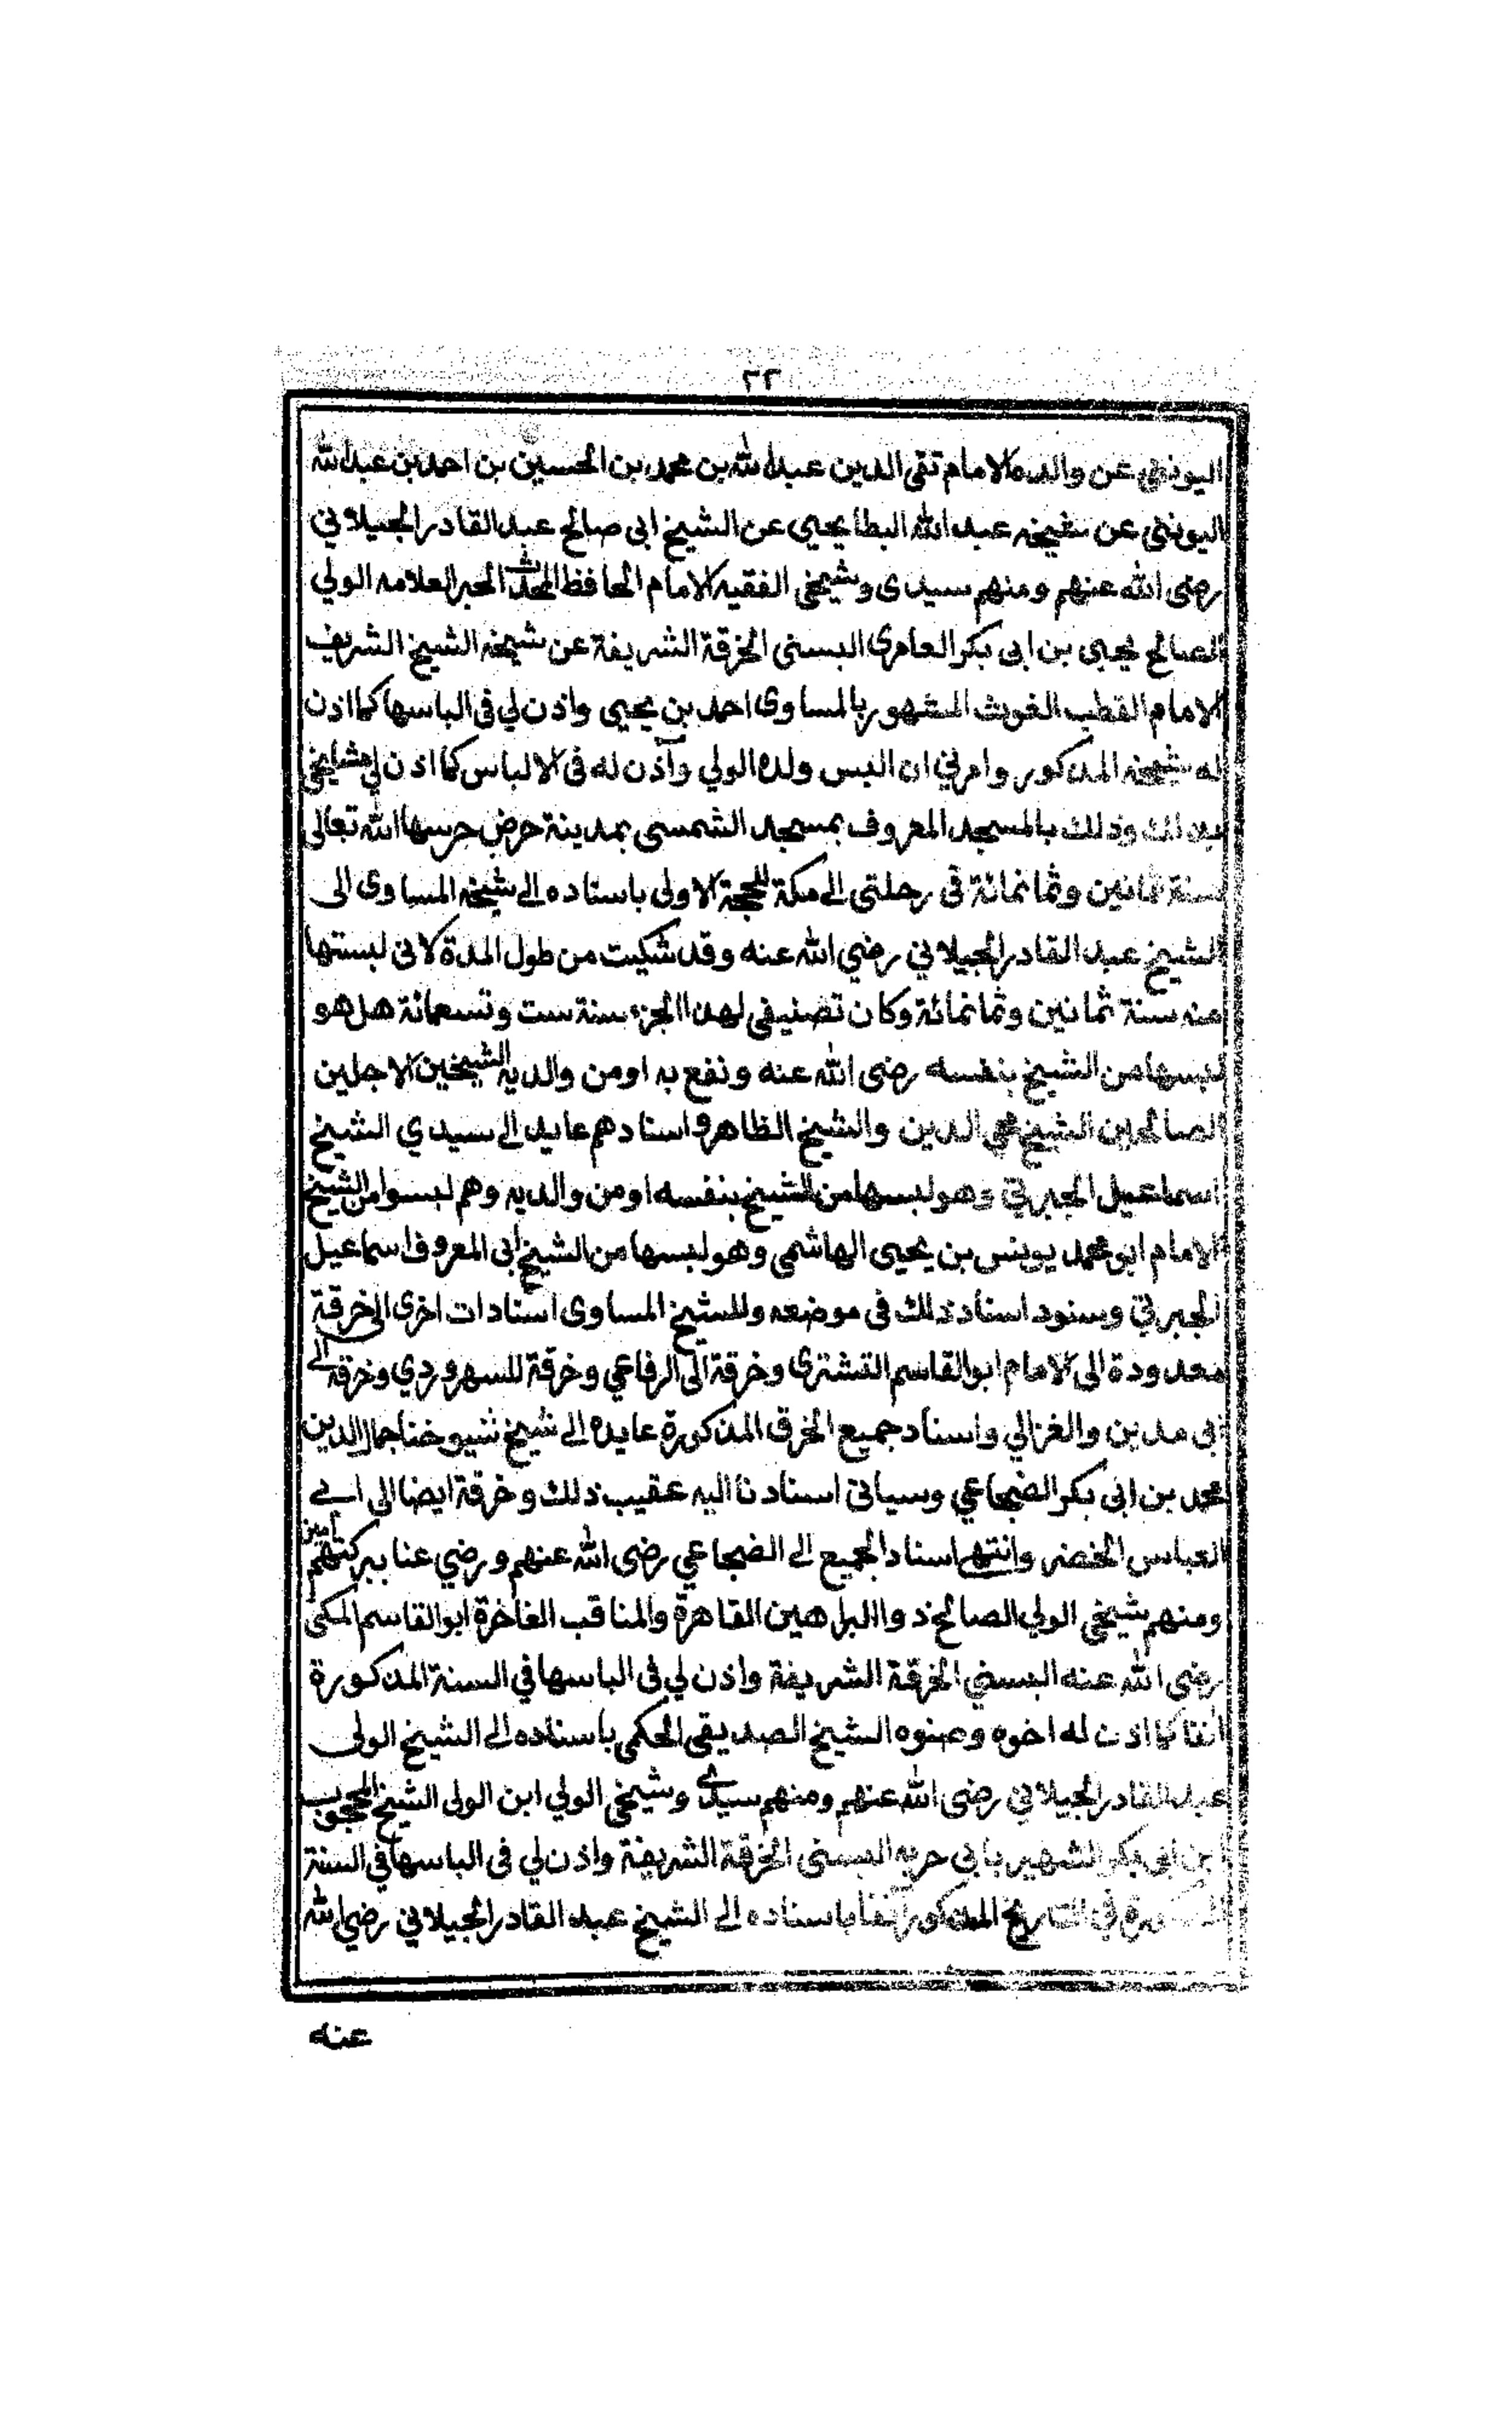 ٢٢
اليونيني عن والده الامام تقي الدين عبد الله بن محمد بن الحسين بن احمد بن عبد الله
اليونيني عن شيخه عبد الله البطايحي عن الشيخ ابى صالح عبد القادر الجيلاني
رضى الله عنهم ومنهم سيدى وشيخى الفقيه الامام الحافظ المحدث الحبر العلامه الولي
الصالح يحيى بن ابى بكر العامرى البسنى الخرقة الشريفة عن شيخه الشيخ الشريف
الامام القطب الغوث المشهور بالمساوى احمد بن يحيى واذن لي فى الباسها كما اذن
له شيخه المذكور وامرني ان البس ولده الولي وآذن له فى الالباس كما اذن لي مشايخي
بذلك وذلك بالمسجد المعروف بمسجد الشمسى بمدينة حرض حرسها الله تعالى
سنة ثمانين وثمانمائة فى رحلتى الى مكة للحجة الاولى باسناده الى شيخه المساوى الى
الشيخ عبد القادر الجيلاني رضي الله عنه وقد شكيت من طول المدة لانى لبستها
منه سنة ثمانين وثمانمائة وكان تصنيفى لهذا الجزء سنة ست وتسعمائة هل هو
لبسها من الشيخ بنفسه رضى الله عنه ونفع به او من والديه الشيخين الاجلين
الصالحين الشيخ محي الدين والشيخ الظاهر واسنادهم عايد الى سيدي الشيخ
اسماعيل الجبرتي وهو لبسها من الشيخ بنفسه او من والديه وهم لبسوا من الشيخ
الامام ابو محمد يونس بن يحيى الهاشمى وهو لبسها من الشيخ ابى المعروف اسماعيل
الجبرتي وسنورد اسناد ذلك فى موضعه وللشيخ المساوى اسنادات اخرى الى خرقة
معدودة الى الامام ابو القاسم التشترى وخرقة الى الرفاعي وخرقة للسهروردي وخرقة الى
ابى مدين والغزالي واسناد جميع الخرق المذكورة عايده الى شيخ شيوخنا جمال الدين
محمد بن ابى بكر الضجاعي وسياتى اسنادنا اليه عقيب ذلك وخرقة ايضا الى ابى
العباس الخضر وانتهى اسناد الجميع الى الضجاعي رضى الله عنهم ورضي عنا ببركتهم آمين
ومنهم شيخى الولي الصالح ذو البراهين القاهرة والمناقب الفاخرة ابو القاسم المكى
رضى الله عنه البسني الخرقة الشريفة واذن لي فى الباسها في السنة المذكورة
انفا كما اذن له اخوه وصنوه الشيخ الصديقى الحكمى باسناده الى الشيخ الولى
عبد القادر الجيلاني رضى الله عنهم ومنهم سيدي وشيخى الولي ابن الولى الشيخ المحجوب
بن ابى بكر الشهير بابي حربه البسنى الخرقة الشريفة واذن لي فى الباسها في السنة
في التاريخ المذكور آنفا باسناده الى الشيخ عبد القادر الجيلاني رضي الله
عنه